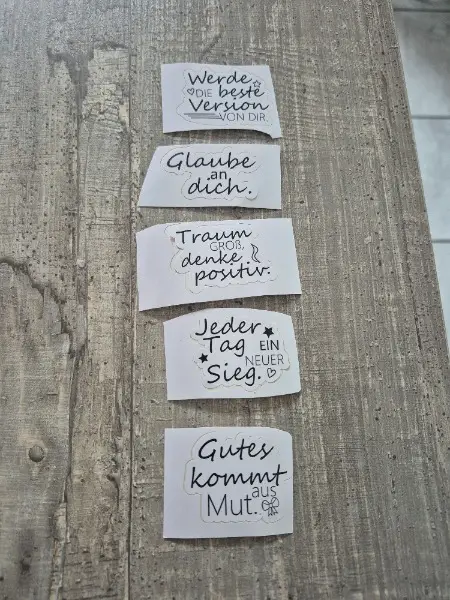 Werde
DIE beste
Version
VON DIR.
Glaube
an
dich.
Traum
GROß,
denke
positiv.
Jeder
Tag EIN
NEUER
Sieg.
Gutes
kommt
aus
Mut.